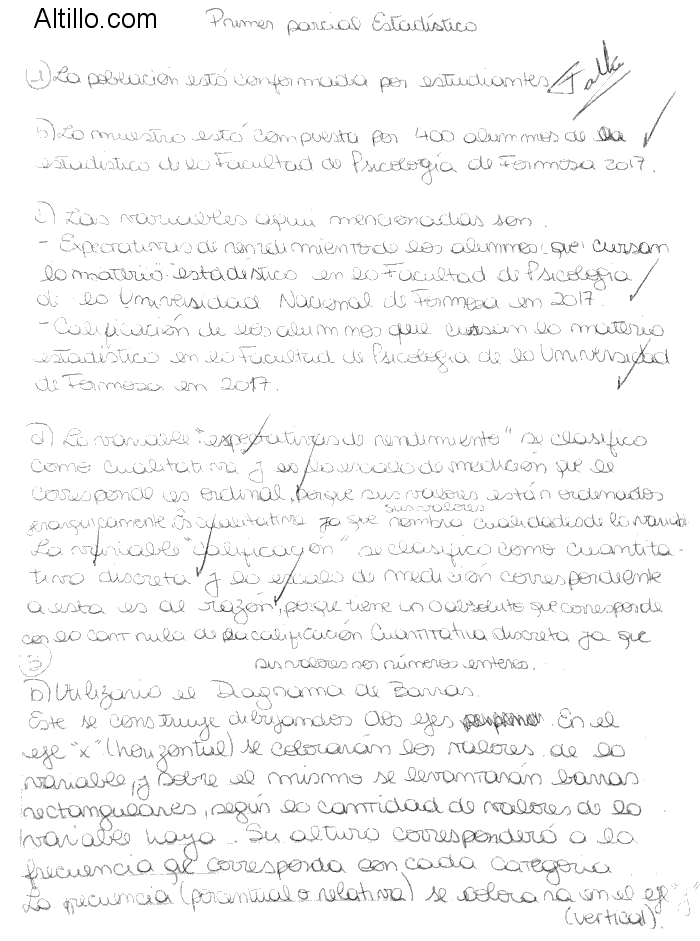 Altillo.com
Primer parcial Estadístico
1) La población está conformada por estudiantes. Falta
b) La muestra está compuesta por 400 alumnos de la
estadística de la Facultad de Psicología de Formosa 2017.
c) Las variables aquí mencionadas son.
- Expectativas de rendimiento de los alumnos que cursan
la materia estadística en la Facultad de Psicología
de la Universidad Nacional de Formosa en 2017.
- Calificación de los alumnos que cursan la materia
estadística en la Facultad de Psicología de la Universidad
de Formosa en 2017.
d) La variable "expectativas de rendimiento" se clasifica
como cualitativa y es la escala de medición que le
corresponde es ordinal, porque sus valores están ordenados
jerárquicamente Es cualitativa ya que sus valores nombra cualidades de la variable
La variable "calificación" se clasifica como cuantita-
tiva discreta y la escala de medición correspondiente
a esta es de razón, porque tiene un 0 absoluto que corresponde
con la cant nula de la calificación Cuantitativa discreta ya que
sus valores son números enteros.
3
b) Utilizaría el Diagrama de Barras.
Este se construye dibujando dos ejes En el
eje "x" (horizontal) se colorarán los valores de la
variable, y sobre el mismo se levantarán barras
rectangulares, según la cantidad de valores de la
variable haya. Su altura corresponderá a la
frecuencia qe corresponda con cada categoría
La frecuencia (porcentual o relativa) se colora ra en el eje "y"
(vertical).